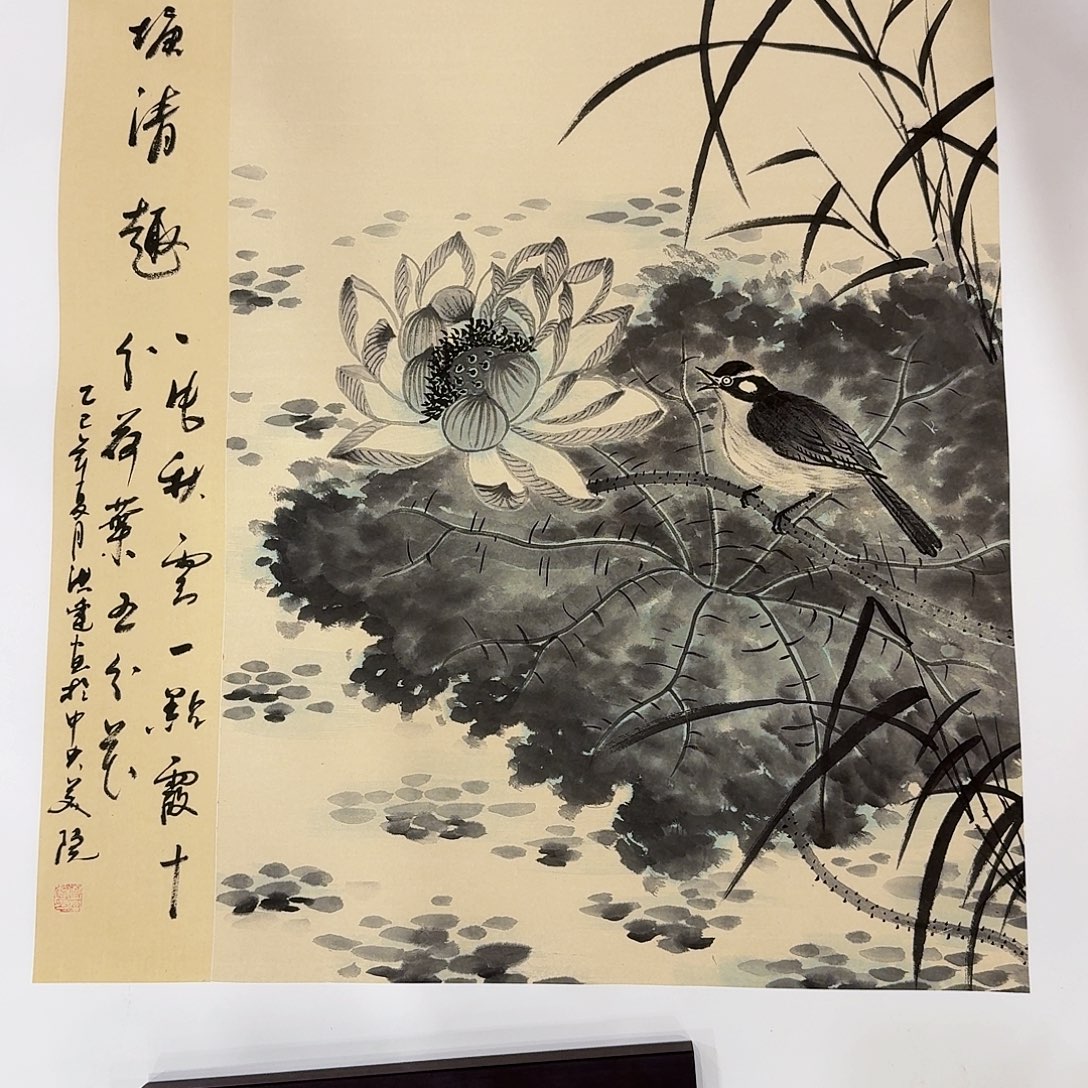 塘清趣
一片秋雲一點霞十
分荷葉五分花
乙巳年夏月洪於中央美院